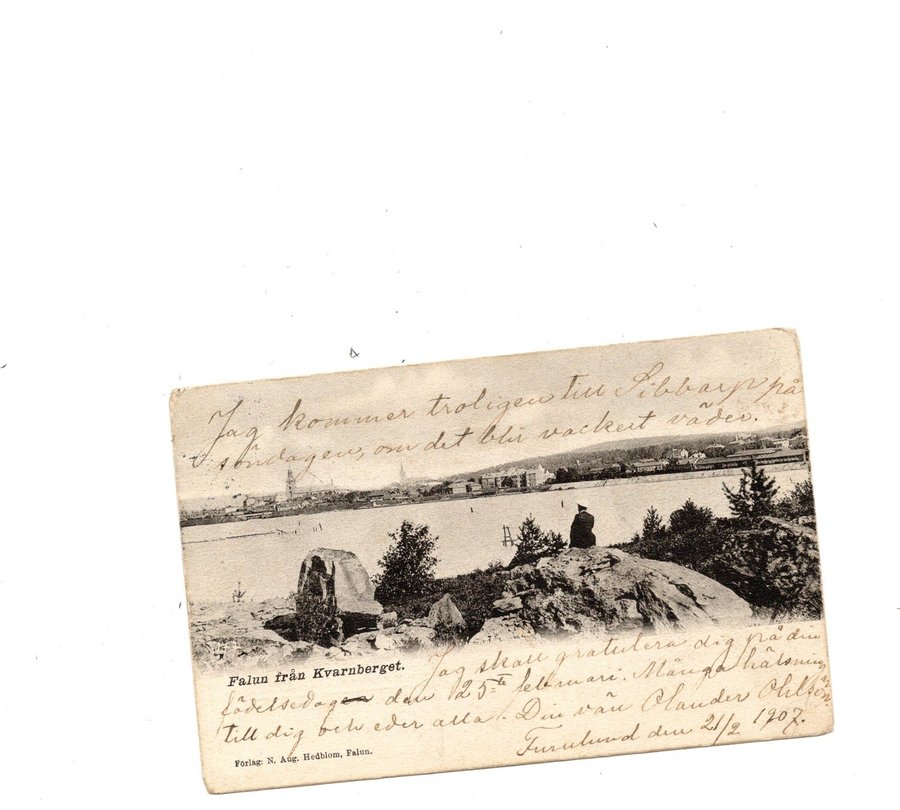 Jag kommer troligen till Sibbarp på
söndagen, om det blir vackert väder.
Jag skall gratulera dig på din
födelsedagen den 25te februari. Många hälsningar
till dig och eder alla. Din vän Olander Ohlson
Furulund den 21/2 1907.
Falun från Kvarnberget.
Förlag: N. Aug. Hedblom, Falun.